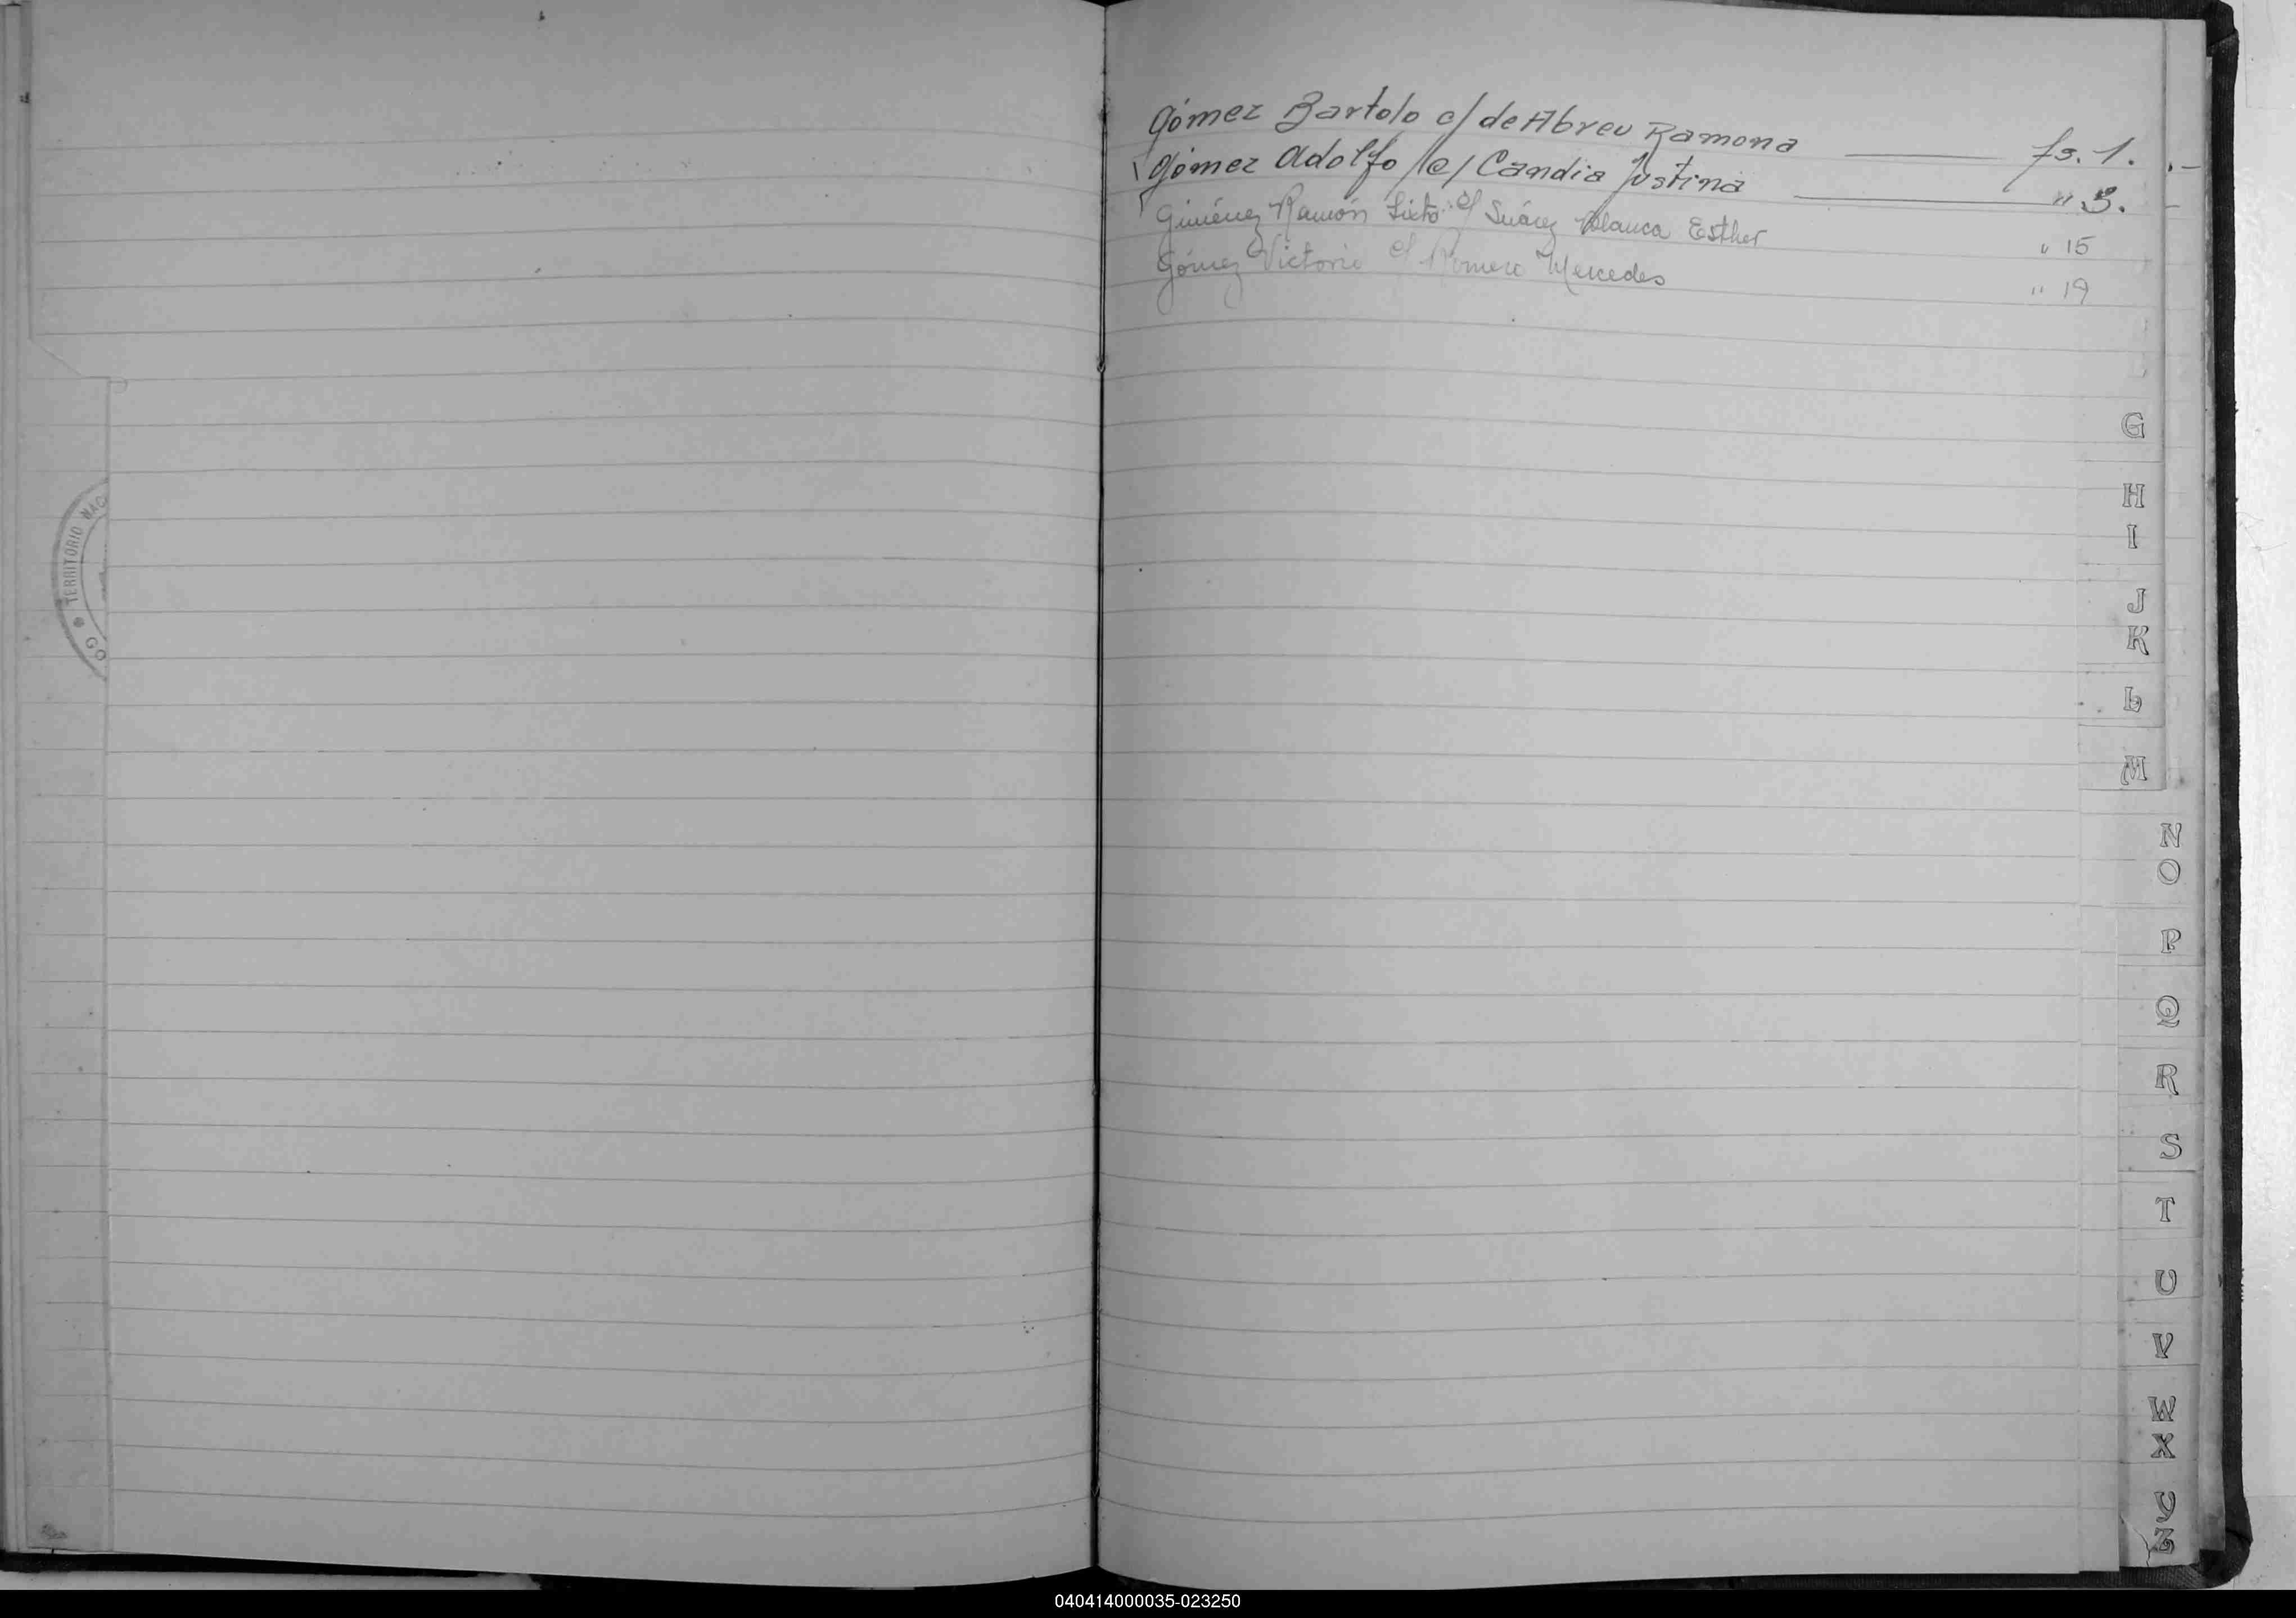 Gómez Bartolo c/ de Abreu Ramona fs. 1.
Gómez Adolfo c/ Candia Justina " 3.
Giménez Ramón Sixto c/ Suárez Blanca Esther " 15
Gómez Victorio c/ Romero Mercedes " 19
G
H
I
J
K
L
M
N
O
P
Q
R
S
T
U
V
W
X
Y
Z
TERRITORIO NAC
GO
040414000035-023250